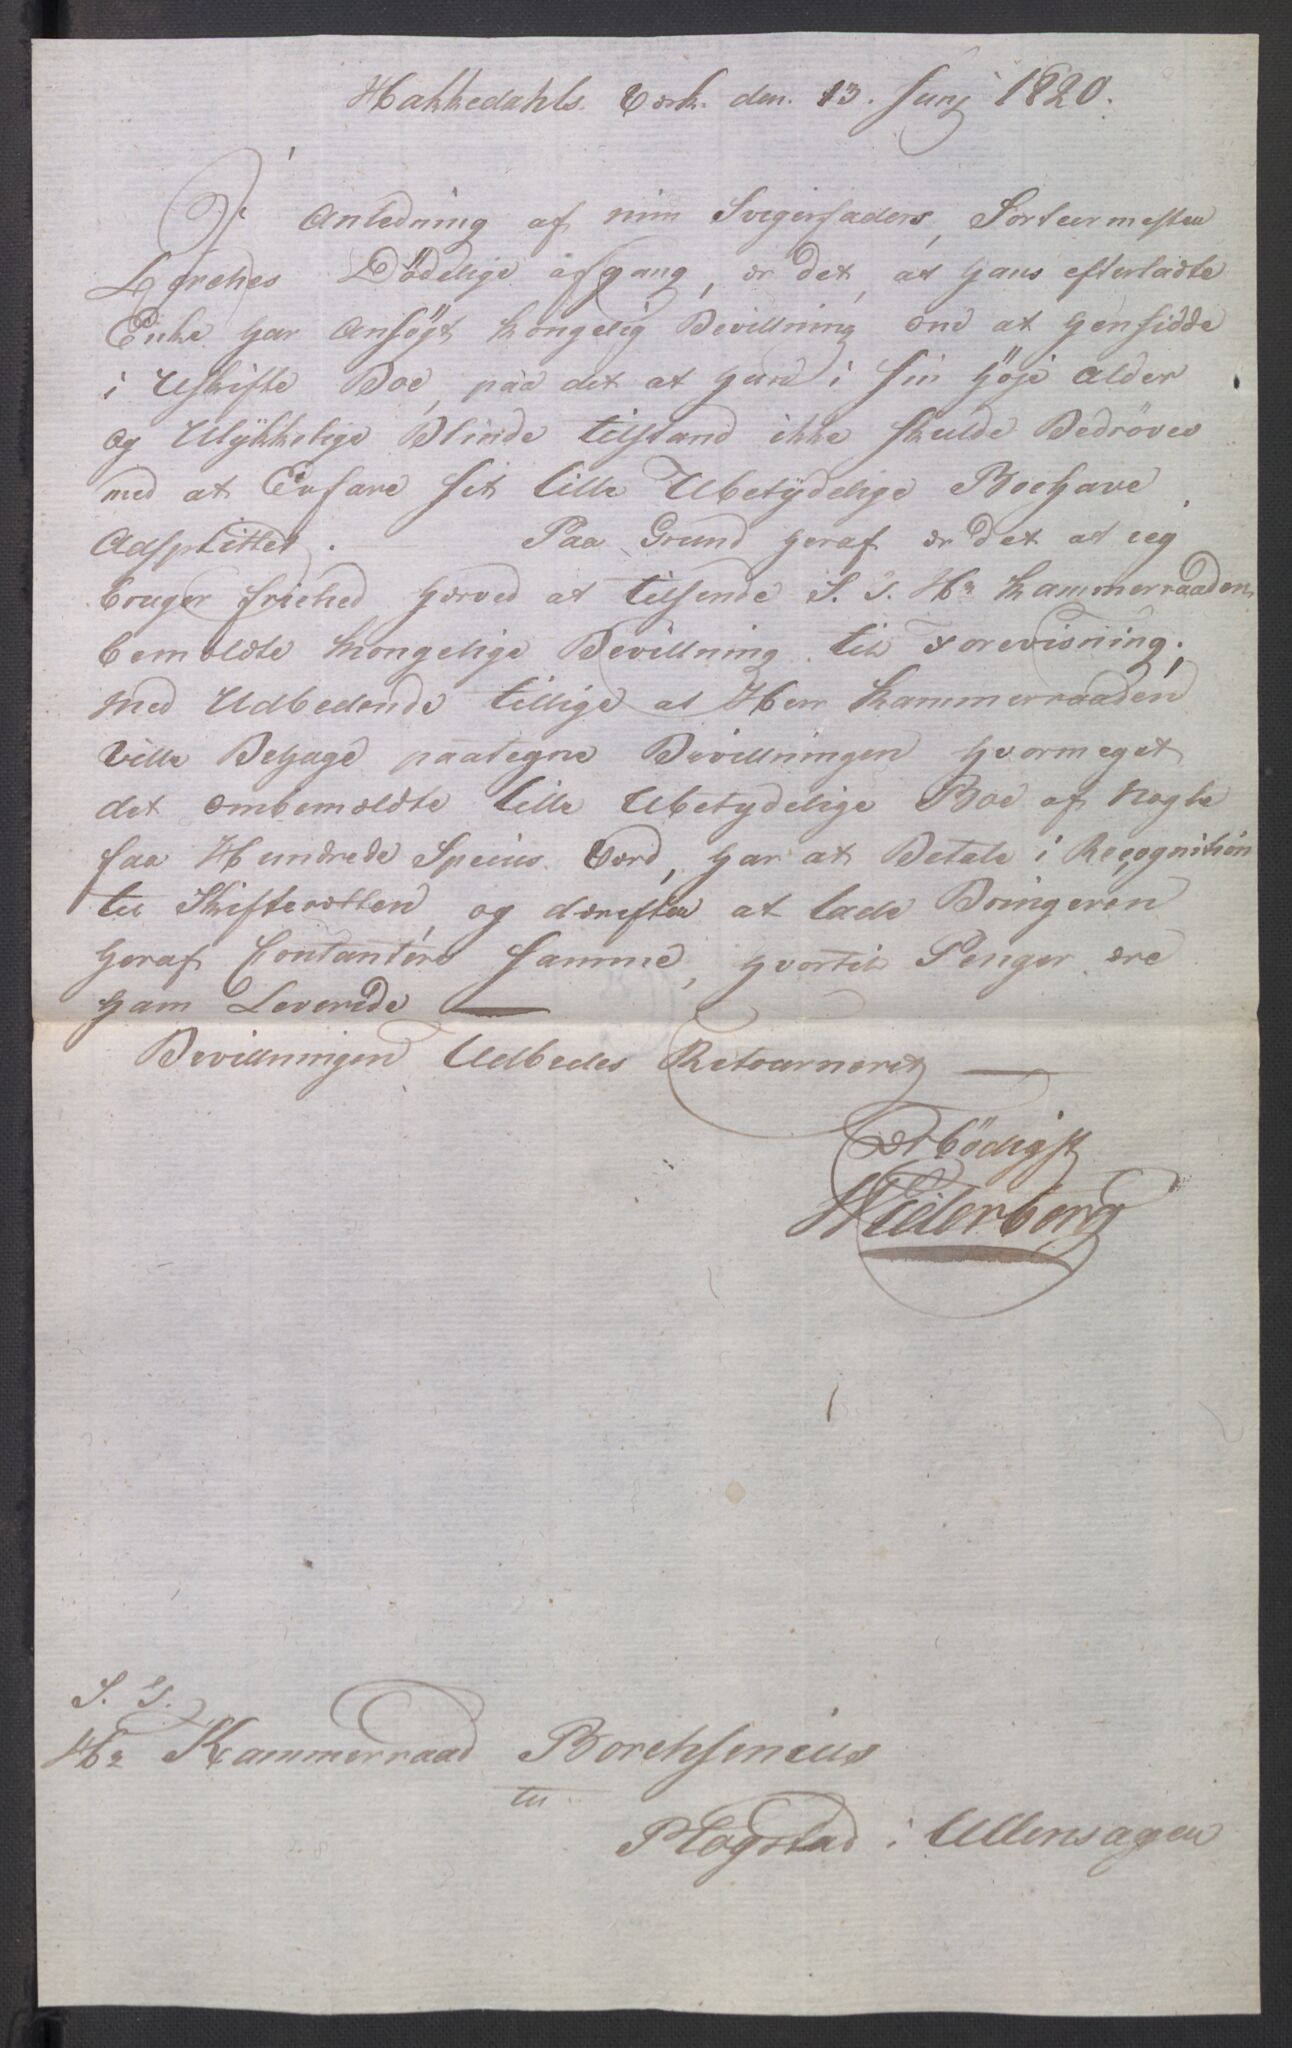 Hakkedahls Værk den 13. Junj 1820.
I Anledning af min Svigerfaders, Sorteermester
Lerches Dödelige afgang, er det, at hans efterladte
Enke har Ansögt kongelig Bevillning om at hensidde
i Uskifte Boe, paa det at hun i sin höje Alder
og Ulÿkkelige Blinde tilstand ikke skulde Bedröves
med at Erfare sit lille Ubetÿdelige Boehave
Adsplittet. Paa Grund heraf er det at ieg
bruger friehed herved at tilsende S. T. Hr Kammerraaden
bemeldte kongelige Bevillning til Forevisning,
med Udbedende tillige at Herr Kammerraaden
ville Behage paategne Bevillningen hvormeget
det ombemeldte lille Ubetydelige Boe af Nogle
faa Hundrede Specius Værd, har at Betale i Recognition
til Skifteretten, og derefter at lade Bringeren
heraf Contantere samme, hvortil Penger ere
ham Leverede —
Bevillningen Udbedes Retourneret —
Ærbödigst
Widerberg
S. T.
Hr Kammerraad Borchsenius
til
Plogstad i Ullensager